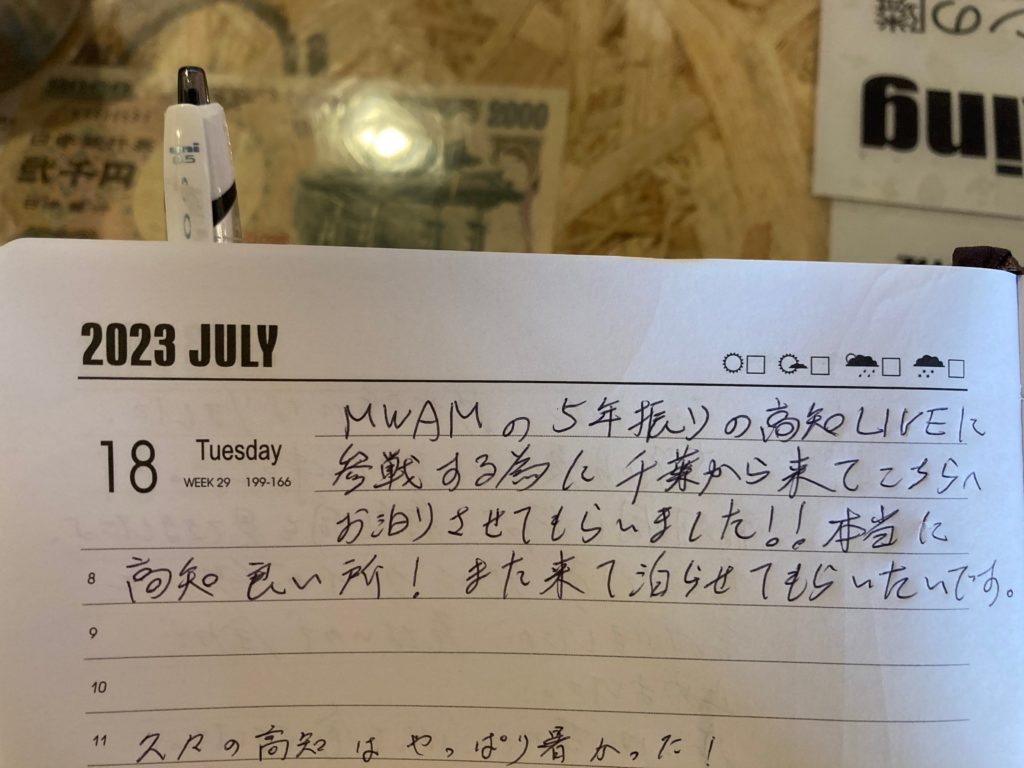 2000
日本銀行券
弐千円
uni
0.5
ing
の隣
2023 JULY
18 Tuesday
WEEK 29 199-166
MWAMの5年振りの高知LIVEに
参戦する為に千葉から来てこちらへ
お泊りさせてもらいました!!本当に
8 高知良い所!また来て泊らせてもらいたいです。
9
10
11 久々の高知はやっぱり暑かった!